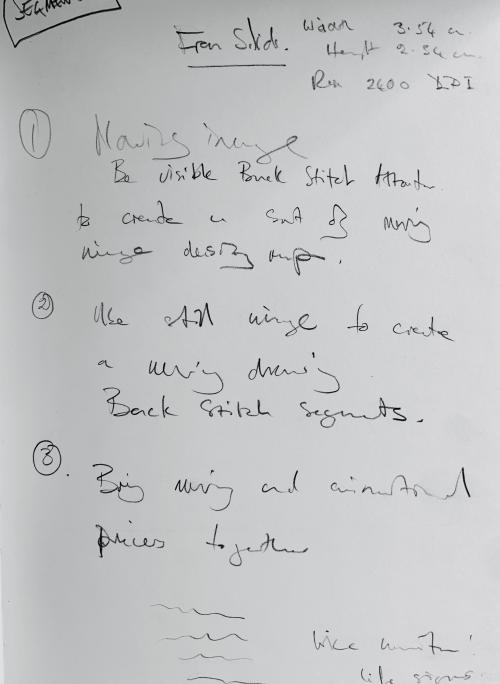 SEGMEN
From Slide.
Width 3.54 cm.
Height 2.34 cm.
Res 2400 DPI
1 Moving image
Be visible Back Stitch
to create a sort of moving
image density map.
2 Use still image to create
a moving drawing
Back Stitch Segments.
3. Bring moving and animational
pieces together
like
life signs.